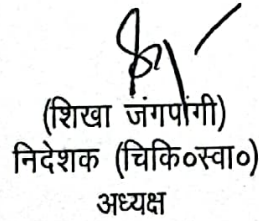 (शिखा जंगपांगी)
निदेशक (चिकि०स्वा०)
अध्यक्ष